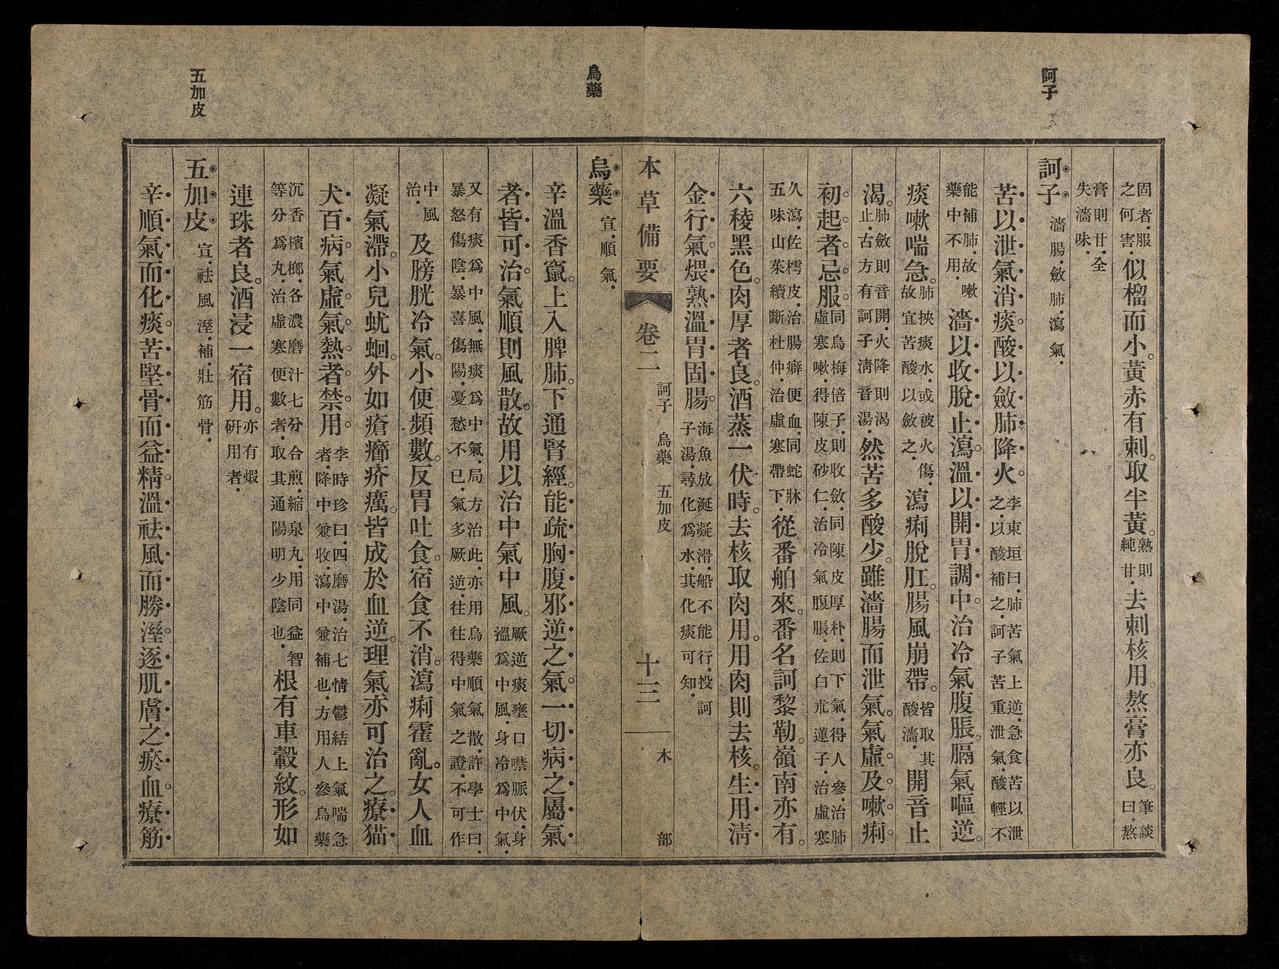 訶子
烏藥
五加皮
固者.服之何害.似榴而小.黃赤有刺.取半黃.熟則純甘.去刺核用.熬膏亦良.筆談曰.熬
膏則甘全失濇味.
訶子 濇腸.斂肺.瀉氣.
苦以泄氣消痰.酸以斂肺降火.李東垣曰.肺苦氣上逆.急食苦以泄之.以酸補之.訶子苦重泄氣.酸輕不
能補肺.故嗽藥中不用.濇以收脫止瀉.溫以開胃調中.治冷氣腹脹.膈氣嘔逆.
痰嗽喘急.肺挾痰水.或被火傷.故宜苦酸以斂之.瀉痢脫肛.腸風崩帶.皆取其酸濇.開音止
渴.肺斂則音開.火降則渴止.古方有訶子淸音湯.然苦多酸少.雖濇腸而泄氣.氣虛.及嗽痢
初起者忌服.同烏梅倍子則收斂.同陳皮厚朴.則下氣.得人參.治肺虛寒嗽.得陳皮砂仁.治冷氣腹脹.佐白朮蓮子.治虛寒
久瀉.佐樗皮.治腸癖便血.同蛇牀五味山茱續斷杜仲.治虛寒帶下.從番舶來.番名訶黎勒.嶺南亦有.
六稜黑色.肉厚者良.酒蒸一伏時.去核取肉用.用肉則去核.生用淸
金行氣.煨熟溫胃固腸.海魚放涎凝滑.船不能行.投訶子湯.尋化爲水.其化痰可知.
本草備要 卷二 訶子 烏藥 五加皮 十三 木部
烏藥 宣.順氣.
辛溫香竄.上入脾肺.下通腎經.能疏胸腹邪逆之氣.一切病之屬氣
者皆可治.氣順則風散.故用以治中氣中風.厥逆痰壅.口噤脈伏.身溫爲中風.身冷爲中氣.
又有痰爲中風.無痰爲中氣.局方治此.亦用烏藥順氣散.許學士曰.暴怒傷陰.暴喜傷陽.憂愁不已.氣多厥逆.往往得中氣之證.不可作
中風治.及膀胱冷氣.小便頻數.反胃吐食.宿食不消.瀉痢霍亂.女人血
凝氣滯.小兒蚘蛔.外如瘡癤疥癘.皆成於血逆.理氣亦可治之.療猫
犬百病.氣虛.氣熱者禁用.李時珍曰.四磨湯.治七情鬱結.上氣喘急者.降中兼收.瀉中兼補也.方用人參烏藥
沉香檳榔.各濃磨汁七分合煎.縮泉丸.用同益智等分爲丸.治虛寒便數者.取其通陽明少陰也.根有車轂紋.形如
連珠者良.酒浸一宿用.亦有煆硏用者.
五加皮 宣.祛風溼.補.壯筋骨.
辛順氣而化痰.苦堅骨而益精.溫祛風而勝溼.逐肌膚之瘀血.療筋